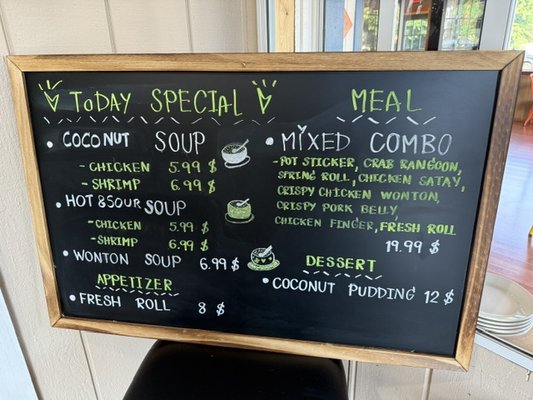 TODAY SPECIAL
COCONUT SOUP
- CHICKEN 5.99 $
- SHRIMP 6.99 $
HOT & SOUR SOUP
- CHICKEN 5.99 $
- SHRIMP 6.99 $
WONTON SOUP 6.99 $
APPETIZER
FRESH ROLL 8 $
MEAL
MIXED COMBO
- POT STICKER, CRAB RANGOON,
SPRING ROLL, CHICKEN SATAY,
CRISPY CHICKEN WONTON,
CRISPY PORK BELLY,
CHICKEN FINGER, FRESH ROLL
19.99 $
DESSERT
COCONUT PUDDING 12 $